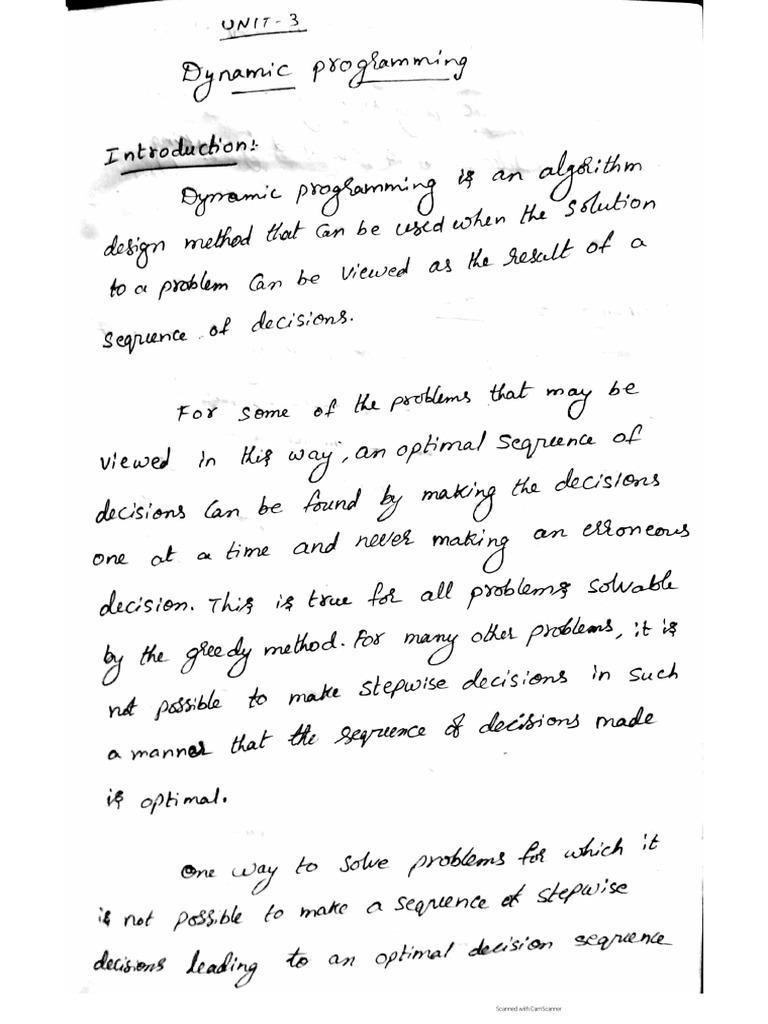 UNIT-3
Dynamic programming
Introduction:
Dynamic programming is an algorithm
design method that can be used when the solution
to a problem can be viewed as the result of a
sequence of decisions.
For some of the problems that may be
viewed in this way, an optimal sequence of
decisions can be found by making the decisions
one at a time and never making an erroneous
decision. This is true for all problems solvable
by the greedy method. For many other problems, it is
not possible to make stepwise decisions in such
a manner that the sequence of decisions made
is optimal.
One way to solve problems for which it
is not possible to make a sequence of stepwise
decisions leading to an optimal decision sequence
Scanned with CamScanner